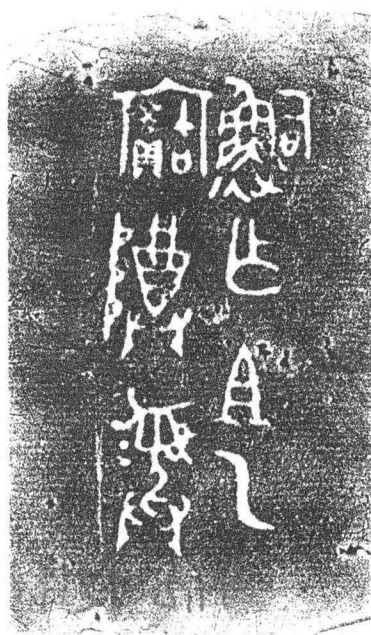 乍且乙
寶尊彝